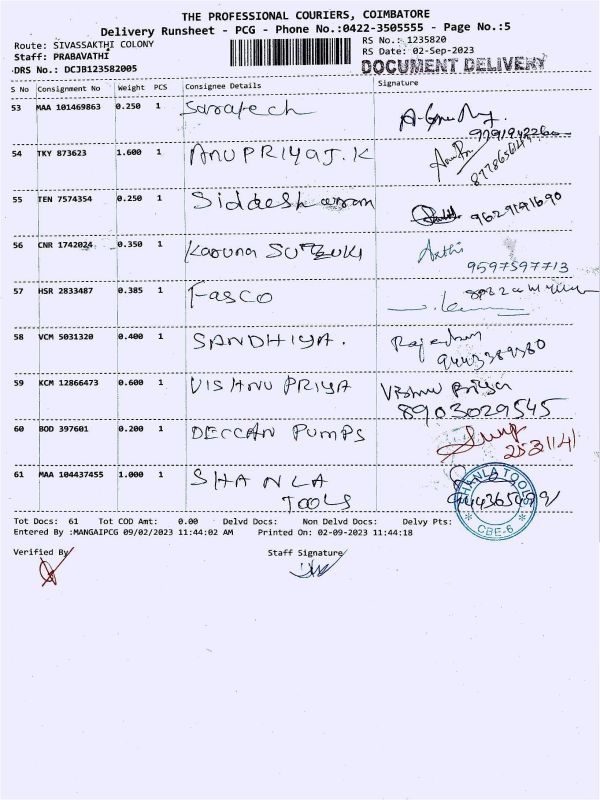 THE PROFESSIONAL COURIERS, COIMBATORE
Delivery Runsheet - PCG - Phone No.:0422-3505555 - Page No.:5
Route: SIVASSAKTHI COLONY RS No.: 1235820
Staff: PRABAVATHI RS Date: 02-Sep-2023
DRS No.: DCJB123582005 DOCUMENT DELIVERY
S No Consignment No Weight PCS Consignee Details Signature
53 MAA 101469863 0.250 1
54 TKY 873623 1.600 1 ANUPRIYA J.K
55 TEN 7574354 0.250 1 Siddeshwaran 9629191690
56 CNR 1742024 0.350 1 Karuna SUZUKI
9597597713
57 HSR 2833487 0.385 1 Fasco
58 VCM 5031320 0.400 1 SANDHIYA.
9443389380
59 KCM 12866473 0.600 1 VISHNU PRIYA Vishnu Priya
8903029545
60 BOD 397601 0.200 1 DECCAN PUMPS
2521141
61 MAA 104437455 1.000 1 SHANLA
TOOLS
SHANLA TOOLS
CBE-6
Tot Docs: 61 Tot COD Amt: 0.00 Delvd Docs: Non Delvd Docs: Delvy Pts:
Entered By :MANGAIPCG 09/02/2023 11:44:02 AM Printed On: 02-09-2023 11:44:18
Verified By Staff Signature